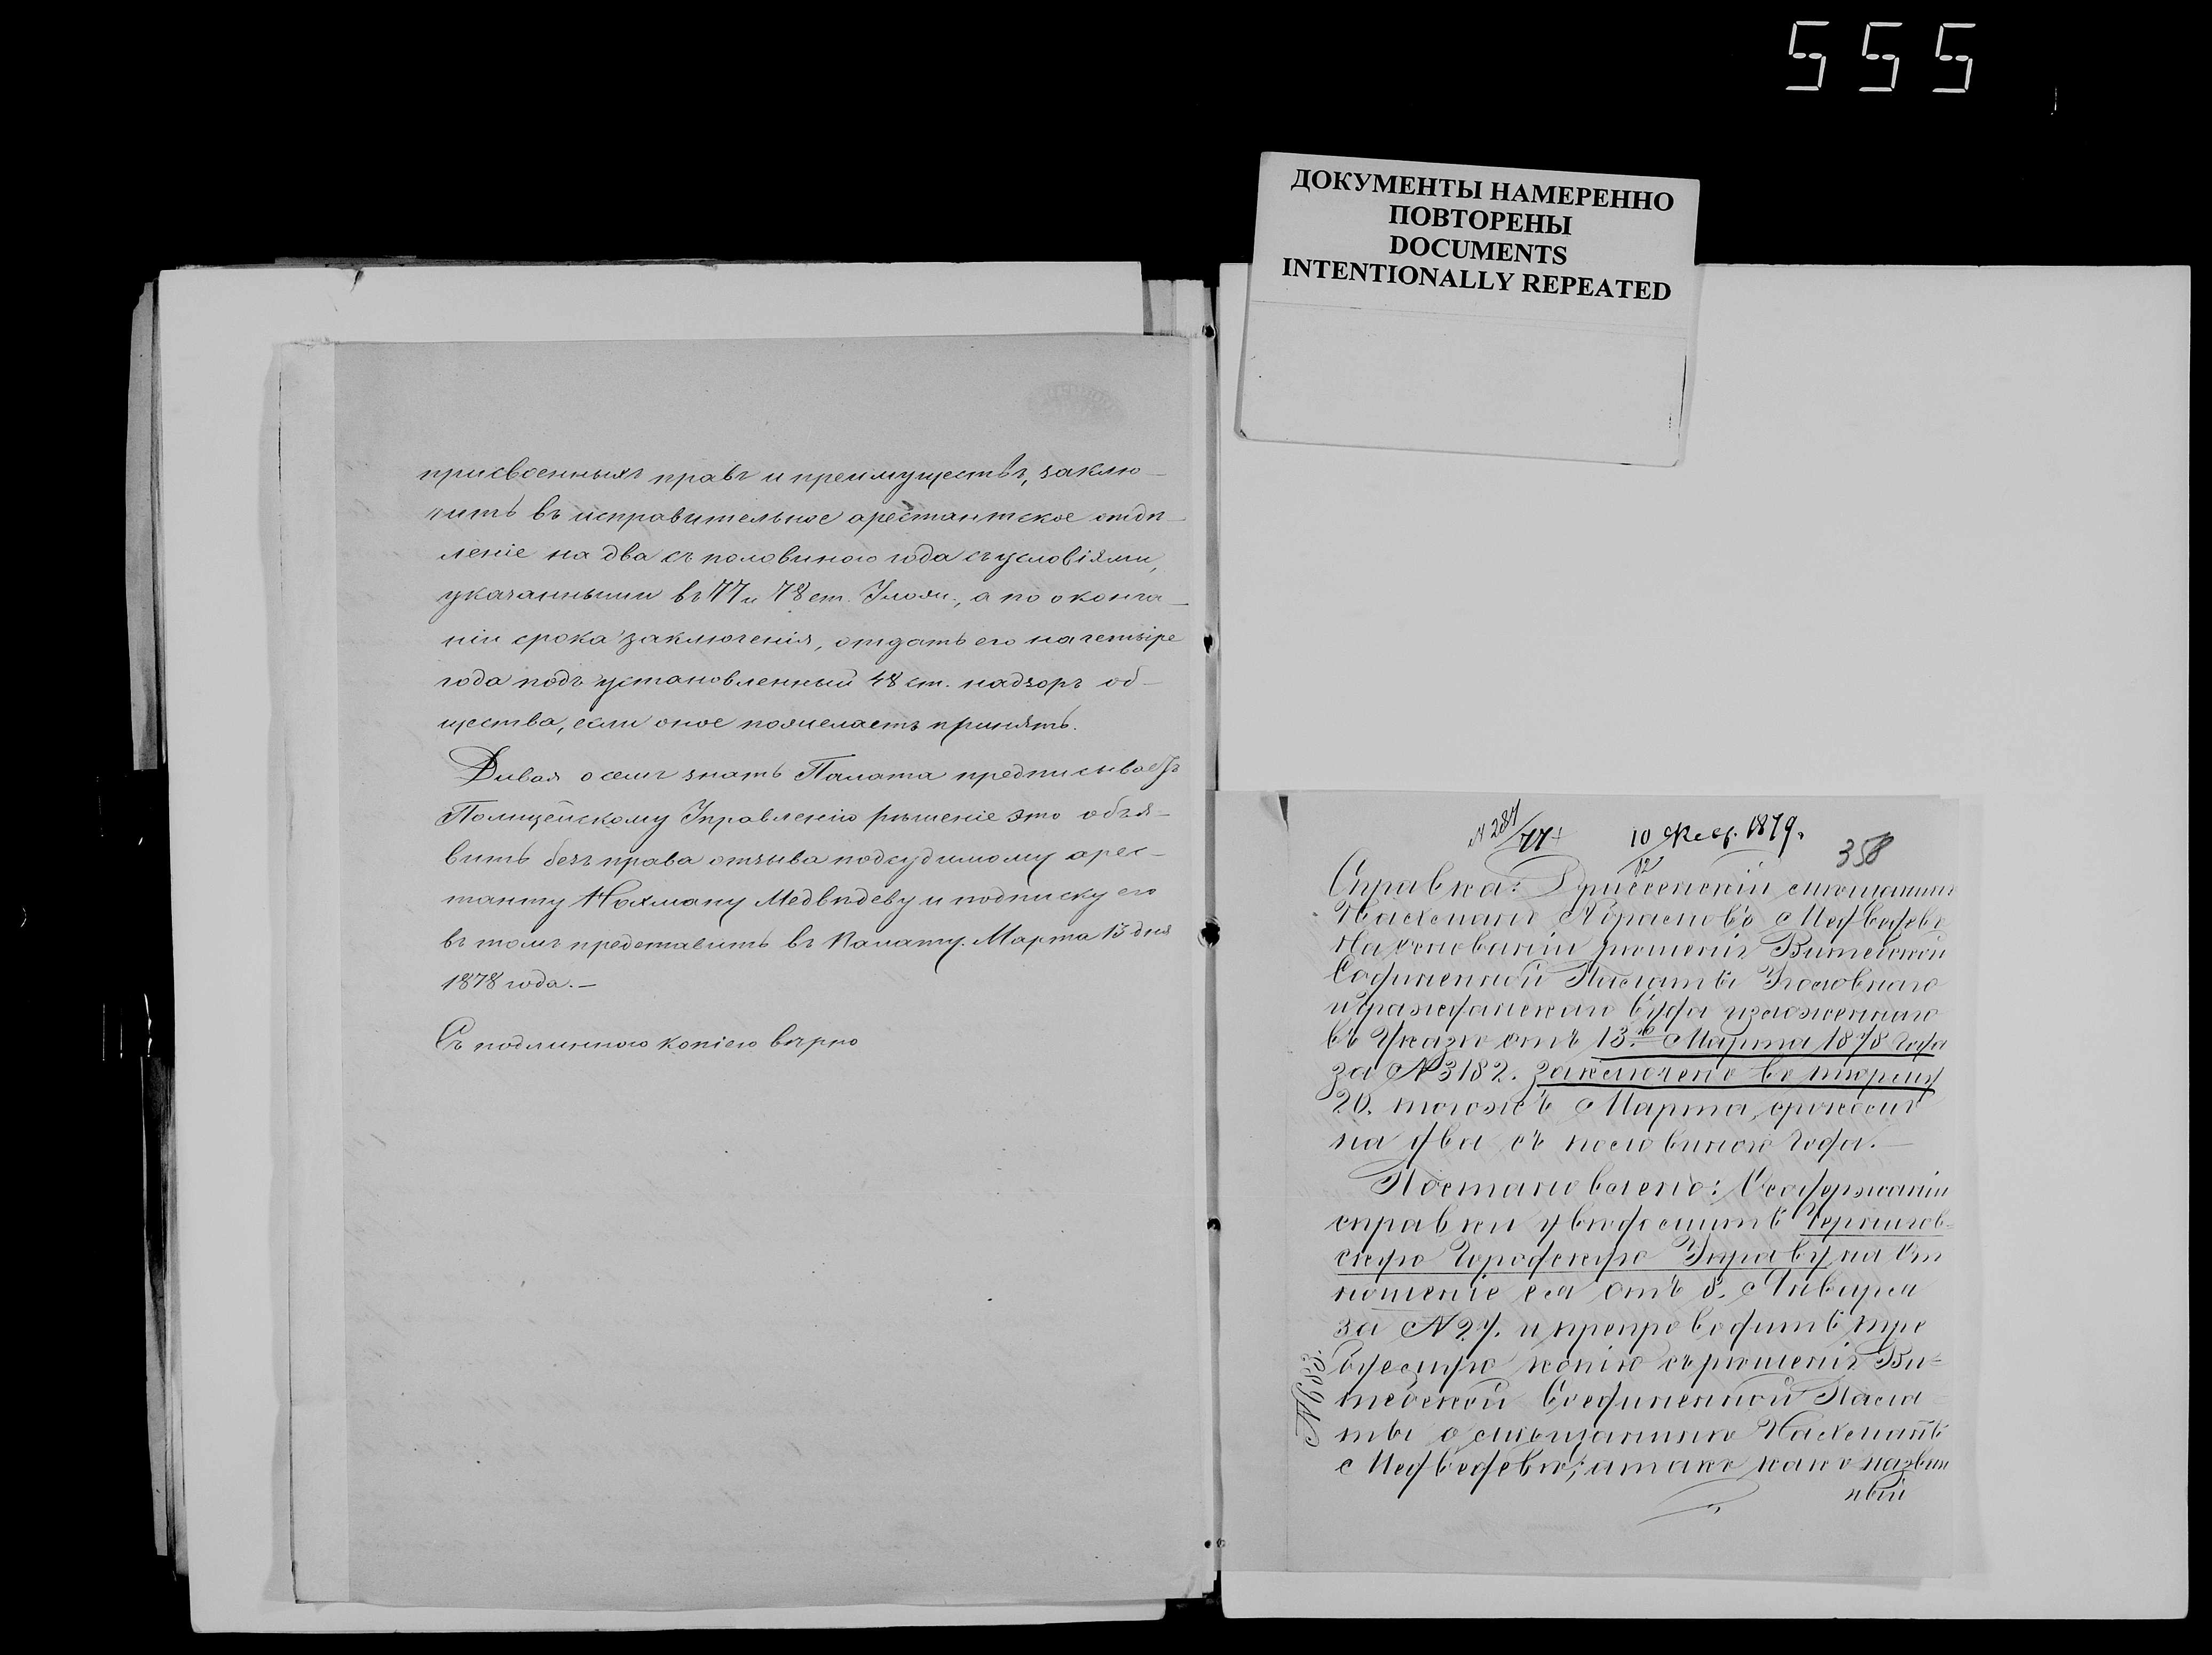 555
ДОКУМЕНТЫ НАМЕРЕННО
ПОВТОРЕНЫ
DOCUMENTS
INTENTIONALLY REPEATED
присвоенныхъ правъ и преимуществъ, заклю-
чить въ исправительное арестантское отдѣ-
леніе на два съ половиною года съ условіями,
указанными въ 77 и 78 ст. Улож., а по оконча-
ніи срока заключенія, отдать его на четыре
года подъ установленный 48 ст. надзоръ об-
щества, если оное пожелаетъ принять.
Давая о семъ знать Палата предписываетъ
Полицейскому Управленію рѣшеніе это объя-
вить безъ права отзыва подсудимому арес-
танту Нохману Медвѣдеву и подписку его
въ томъ представить въ Палату. Марта 13 дня
1878 года.-
Съ подлинною копіею вѣрно
N 284/77
10 Фев. 1879.
358
12
Справка: Дриссенскій мѣщанинъ
Нахманъ Абрамовъ Медвѣдевъ
На основаніи рѣшенія Витебской
Соединенной Палаты Уголовнаго
и Гражданскаго Суда изложеннаго
въ Указѣ отъ 13го Марта 1878 года
за № 3182. заключенъ въ тюрьму
20. тогожъ Марта, срокомъ
на два съ половиною года.-
Постановлено: О содержаніи
справки увѣдомить
скую Городскую Управу на От
ношеніе ея отъ 8. Января
за № 27. и препроводить тре
буемую копію съ рѣшенія Ви=
тебской Соединенной Пала
ты о мѣщанинѣ Нахманѣ
Медвѣдевѣ; а такъ какъ назван
ный
№ 683.